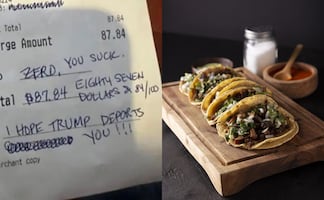 Total 87.84
rge Amount
87.84
ZERO, YOU SUCK.
tal $87.84 EIGHTY SEVEN
DOLLARS & 84/100
I HOPE TRUMP DEPORTS
YOU!!!
rchant copy